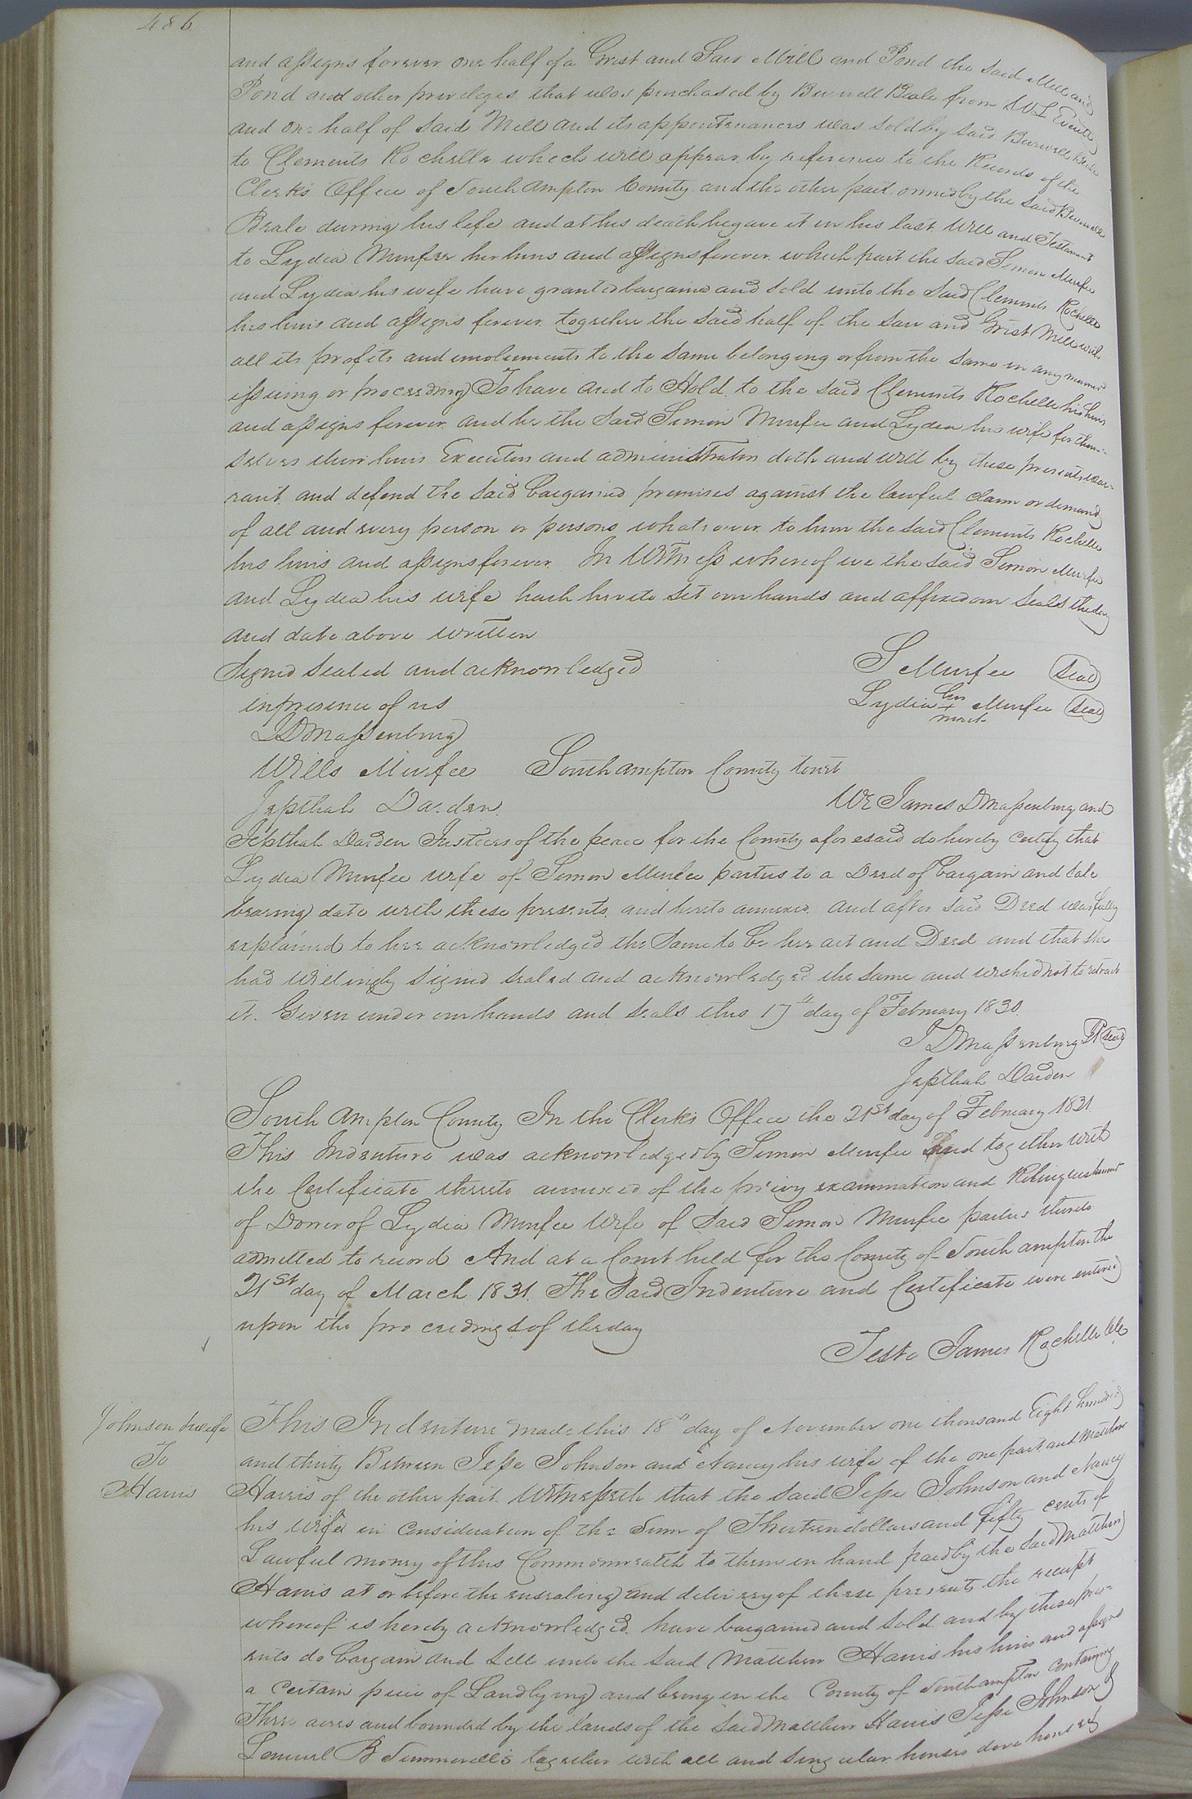 486
and assigns forever one half of a Grist and Saw Mill and Pond the said Mill and
Pond and other priveleges that was purchased by Burwell Beale from W L Everitt
and one half of said Mill and its appurtenances was sold by said Burwell Beale
to Clements Rochelle which will appear by reference to the Records of the
Clerks Office of Southampton County and the other part owned by the said Burwell
Beale during his life and at his death he gave it in his last Will and Testament
to Lydia Murfee her heirs and assigns forever which part the said Simon Murfee
and Lydia his wife have granted bargained and sold unto the said Clements Rochelle
his heirs and assigns forever together the said half of the saw and Grist Mill with
all its profits and emoluements to the same belonging or from the same in any manner
issuing or proceeding To have and to Hold to the said Clements Rochelle his heirs
and assigns forever and he the said Simon Murfee and Lydia his wife for them-
selves their heirs Executors and administrators doth and will by these presents war-
rant and defend the said bargained premises against the lawful claim or demand
of all and every person or persons whatsoever to him the said Clements Rochelle
his heirs and assigns forever In Witness whereof we the said Simon Murfee
and Lydia his wife hath hereto set our hands and affixed our seals the day
and date above written
Signed sealed and acknowledged
in presence of us
J D Massenburg
Wills Murfee
Jepthah Darden
S Murfee (seal)
Lydia her + mark Murfee (seal)
Southampton County Court
We James D Massenburg and
Jepthah Darden Justices of the peace for the County aforesaid do hereby certify that
Lydia Murfee wife of Simon Murfee parties to a Deed of bargain and sale
bearing date with these presents and hereto annexed and after said Deed was fully
explained to her acknowledged the same to be her act and Deed and that she
had willingly signed sealed and acknowledged the same and wished not to retract
it. Given under our hands and seals this 17th day of February 1830.
J D Massenburg JP (seal)
Jepthah Darden
Southampton County In the Clerks Office the 21st day of February 1831
This Indenture was acknowledged by Simon Murfee and together with
the Certificate thereto annexed of the privy examination and Relinquishment
of Dower of Lydia Murfee wife of said Simon Murfee parties thereto
admitted to record And at a Court held for the County of Southampton the
21st day of March 1831 The said Indenture and Certificate were entered
upon the proceedings of the day
Teste James Rochelle Clk
Johnson & wife
To
Harris
This Indenture made this 18th day of November one thousand Eight hundred
and thirty Between Jesse Johnson and Nancy his wife of the one part and Matthew
Harris of the other part Witnesseth that the said Jesse Johnson and Nancy
his wife in consideration of the sum of Thirteen dollars and fifty cents of
Lawful money of this Commonwealth to them in hand paid by the said Matthew
Harris at or before the ensealing and delivery of these presents the receipt
whereof is hereby acknowledged have bargained and sold and by these pres-
ents do bargain and sell unto the said Matthew Harris his heirs and assigns
a certain piece of Land lying and being in the County of Southampton containing
Three acres and bounded by the lands of the said Matthew Harris Jesse Johnson &
Lemuel B together with all and singular